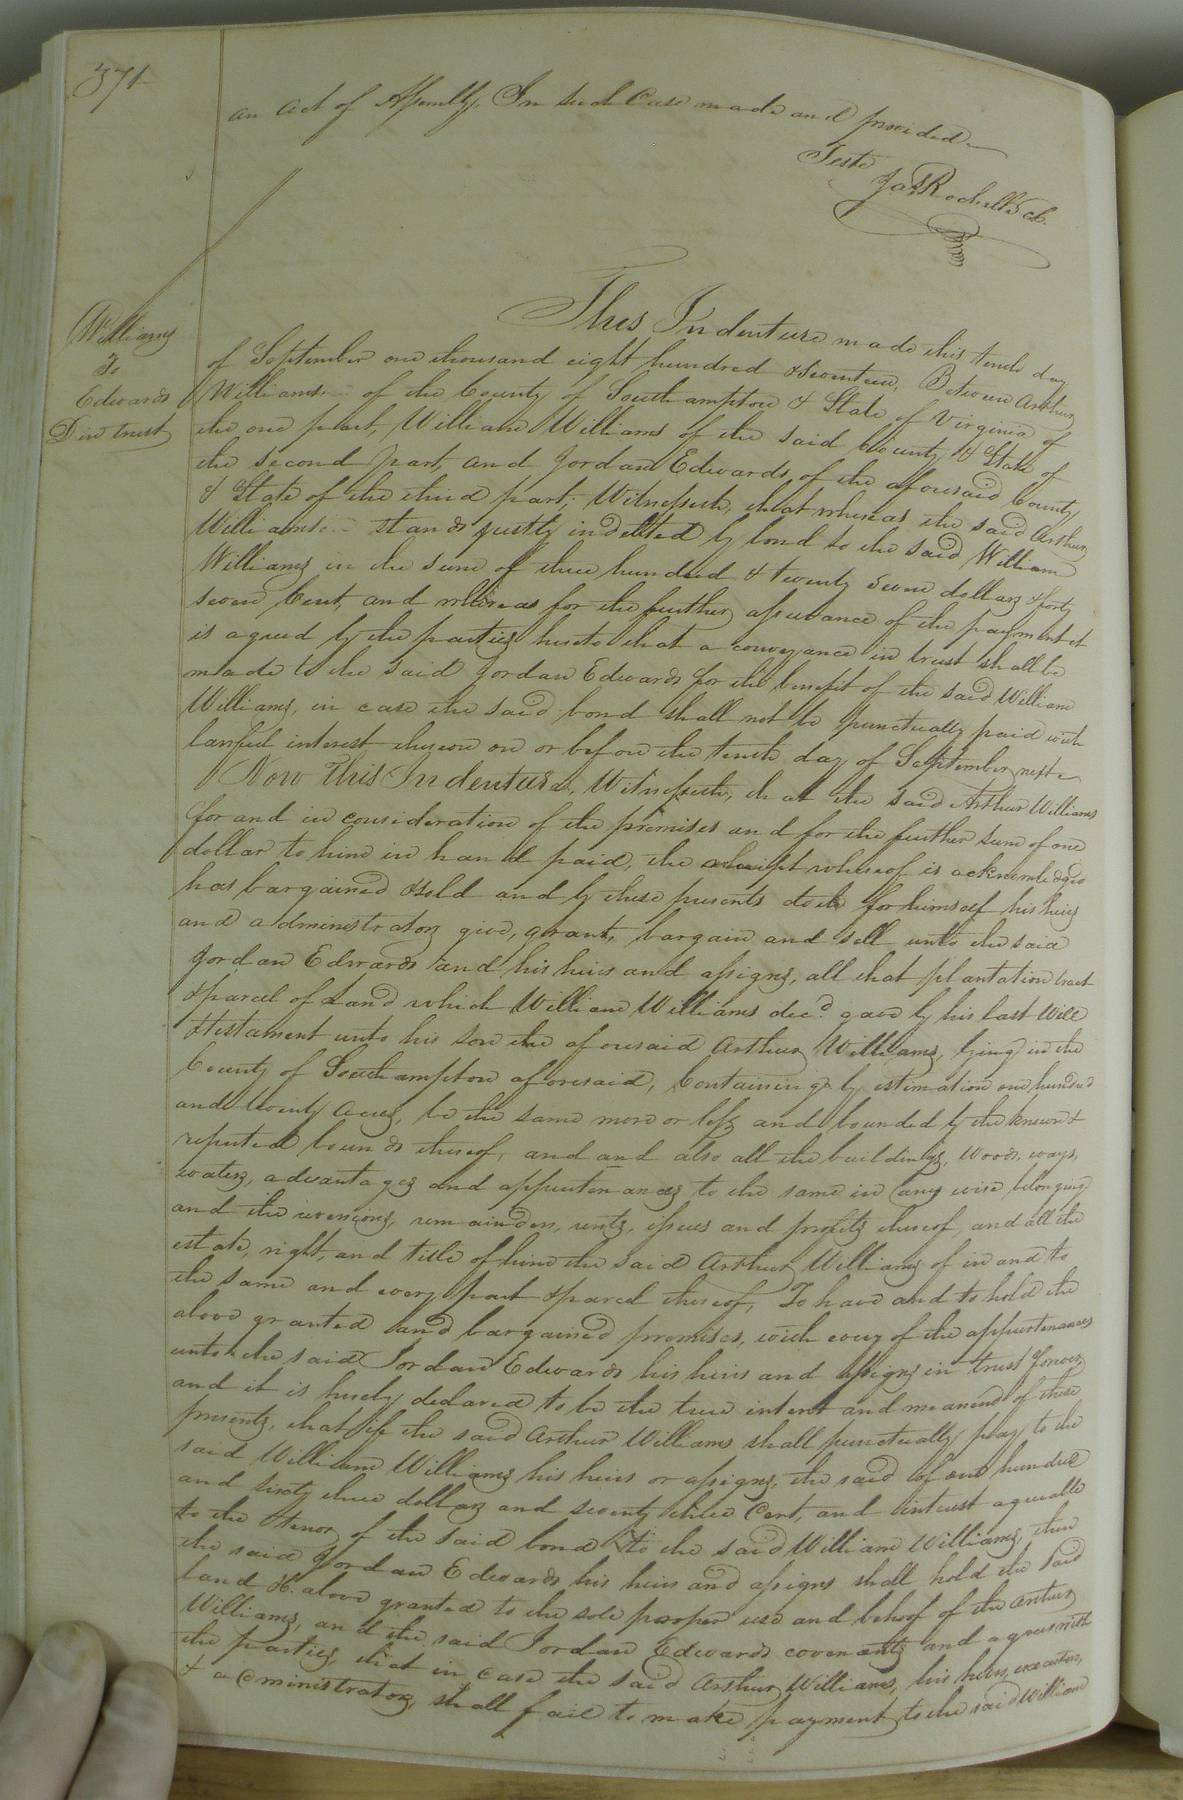 371
an act of Assembly, In such Case made and provided
Teste
Jas Rochelle Ck.
Williams
To
Edwards
D in trust
This Indenture made this tenth day
of September one thousand eight hundred & seventeen, Between Arthur
Williams of the County of Southampton & State of Virginia of
the one part, William Williams of the said County & State of
the second part, and Jordan Edwards of the aforesaid County
& State of the third part; Witnesseth, that whereas the said Arthur
Williams stands justly indebted by bond to the said William
Williams in the sum of three hundred & twenty seven dollars & forty
seven Cent, and whereas for the further assurance of the payment it
is agreed by the parties hereto that a conveyance in trust shall be
made to the said Jordan Edwards for the benefit of the said William
Williams, in case the said bond shall not be punctually paid with
lawful interest thereon on or before the tenth day of September next
Now This Indenture, Witnesseth, that the said Arthur Williams
for and in consideration of the premises and for the further sum of one
dollar to him in hand paid, the receipt whereof is acknowledged
has bargained & sold and by these presents doth for himself his heirs
and administrators give, grant, bargain and sell unto the said
Jordan Edwards and his heirs and assigns, all that plantation tract
& parcel of Land which William Williams decd. gave by his last Will
& testament unto his son the aforesaid Arthur Williams, lying in the
County of Southampton aforesaid, Containing by estimation one hundred
and twenty Acres, be the same more or less and bounded by the known &
reputed bounds thereof, and and also all the buildings, woods, ways,
waters, advantages and appurtenances to the same in any wise belonging
and the reversions, remainders, rents, issues and profits thereof, and all the
estate, right, and title of him the said Arthur Williams of in and to
the same and every part & parcel thereof, To have and to hold the
above granted and bargained premises, with every of the appurtenances
unto the said Jordan Edwards his heirs and assigns in trust forever,
and it is hereby declared to be the true intent and meaning of these
presents, that if the said Arthur Williams shall punctually pay to the
said William Williams his heirs or assigns, the said of one hundred
and sixty three dollars and seventy three Cent, and interest agreeable
to the tenor of the said bond to the said William Williams, then
the said Jordan Edwards his heirs and assigns shall hold the said
land &c. above granted to the sole proper use and behoof of the Arthur
Williams, and the said Jordan Edwards covenants and agrees with
the parties, that in case the said Arthur Williams, his heirs, executors,
& administrators, shall fail to make payment to the said William